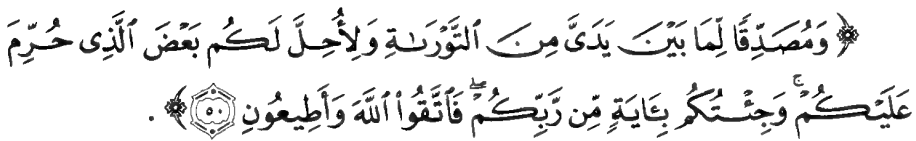 ﴿ وَمُصَدِّقًا لِّمَا بَيْنَ يَدَىَّ مِنَ ٱلتَّوْرَىٰةِ وَلِأُحِلَّ لَكُم بَعْضَ ٱلَّذِى حُرِّمَ
عَلَيْكُمْ ۚ وَجِئْتُكُم بِـَٔايَةٍ مِّن رَّبِّكُمْ ۖ فَٱتَّقُوا۟ ٱللَّهَ وَأَطِيعُونِ ۝٥٠ ﴾ .